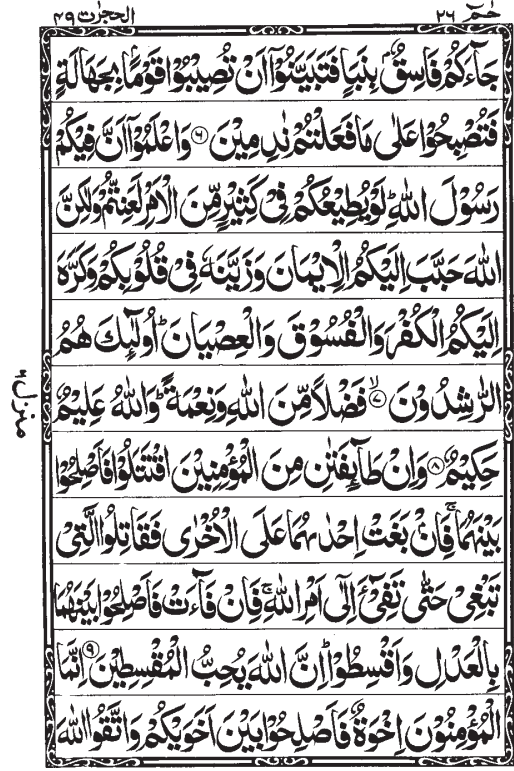 حٰمٓ ٢٦ الحجرٰت ٤٩
جَآءَكُمْ فَاسِقٌۢ بِنَبَاٍ فَتَبَيَّنُوْۤا اَنْ تُصِيْبُوْا قَوْمًۢا بِجَهَالَةٍ
فَتُصْبِحُوْا عَلٰى مَا فَعَلْتُمْ نٰدِمِيْنَ ﴿٦﴾ وَاعْلَمُوْۤا اَنَّ فِيْكُمْ
رَسُوْلَ اللّٰهِ ؕ لَوْ يُطِيْعُكُمْ فِيْ كَثِيْرٍ مِّنَ الْاَمْرِ لَعَنِتُّمْ وَلٰكِنَّ
اللّٰهَ حَبَّبَ اِلَيْكُمُ الْاِيْمَانَ وَزَيَّنَهٗ فِيْ قُلُوْبِكُمْ وَكَرَّهَ
اِلَيْكُمُ الْكُفْرَ وَالْفُسُوْقَ وَالْعِصْيَانَ ؕ اُولٰٓئِكَ هُمُ
الرّٰشِدُوْنَ ۙ﴿٧﴾ فَضْلًا مِّنَ اللّٰهِ وَنِعْمَةً ؕ وَاللّٰهُ عَلِيْمٌ
حَكِيْمٌ ﴿٨﴾ وَاِنْ طَآئِفَتٰنِ مِنَ الْمُؤْمِنِيْنَ اقْتَتَلُوْا فَاَصْلِحُوْا
بَيْنَهُمَا ۚ فَاِنْۢ بَغَتْ اِحْدٰىهُمَا عَلَى الْاُخْرٰى فَقَاتِلُوا الَّتِيْ
تَبْغِيْ حَتّٰى تَفِيْٓءَ اِلٰٓى اَمْرِ اللّٰهِ ۚ فَاِنْ فَآءَتْ فَاَصْلِحُوْا بَيْنَهُمَا
بِالْعَدْلِ وَاَقْسِطُوْا ؕ اِنَّ اللّٰهَ يُحِبُّ الْمُقْسِطِيْنَ ﴿٩﴾ اِنَّمَا
الْمُؤْمِنُوْنَ اِخْوَةٌ فَاَصْلِحُوْا بَيْنَ اَخَوَيْكُمْ وَاتَّقُوا اللّٰهَ
منزل ٦